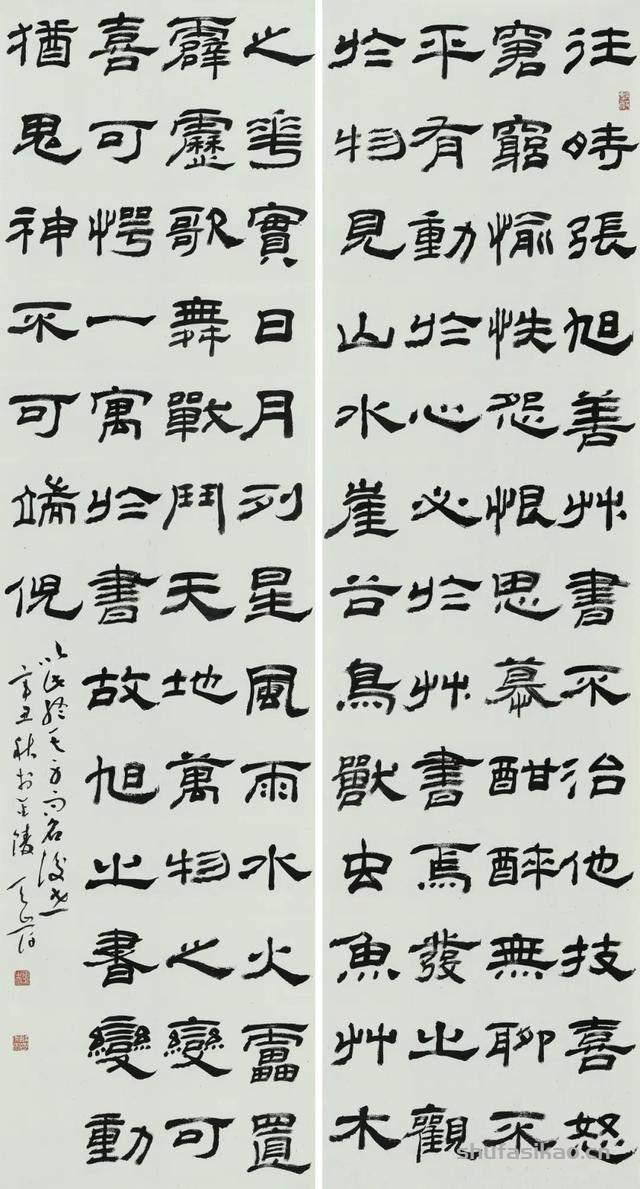 往時張旭善艸書不治他技喜怒
窘窮愉怢怨恨思慕酣醉無聊不
平有動於心必於艸書焉發之觀
於物見山水崖谷鳥獸虫魚艸木
之華實日月列星風雨水火靁置
霹靂歌舞戰鬥天地萬物之變可
喜可愕一寓於書故旭之書變動
猶鬼神不可端倪
以此終其身而名後世
辛丑秋於金陵
shufasikao.cn